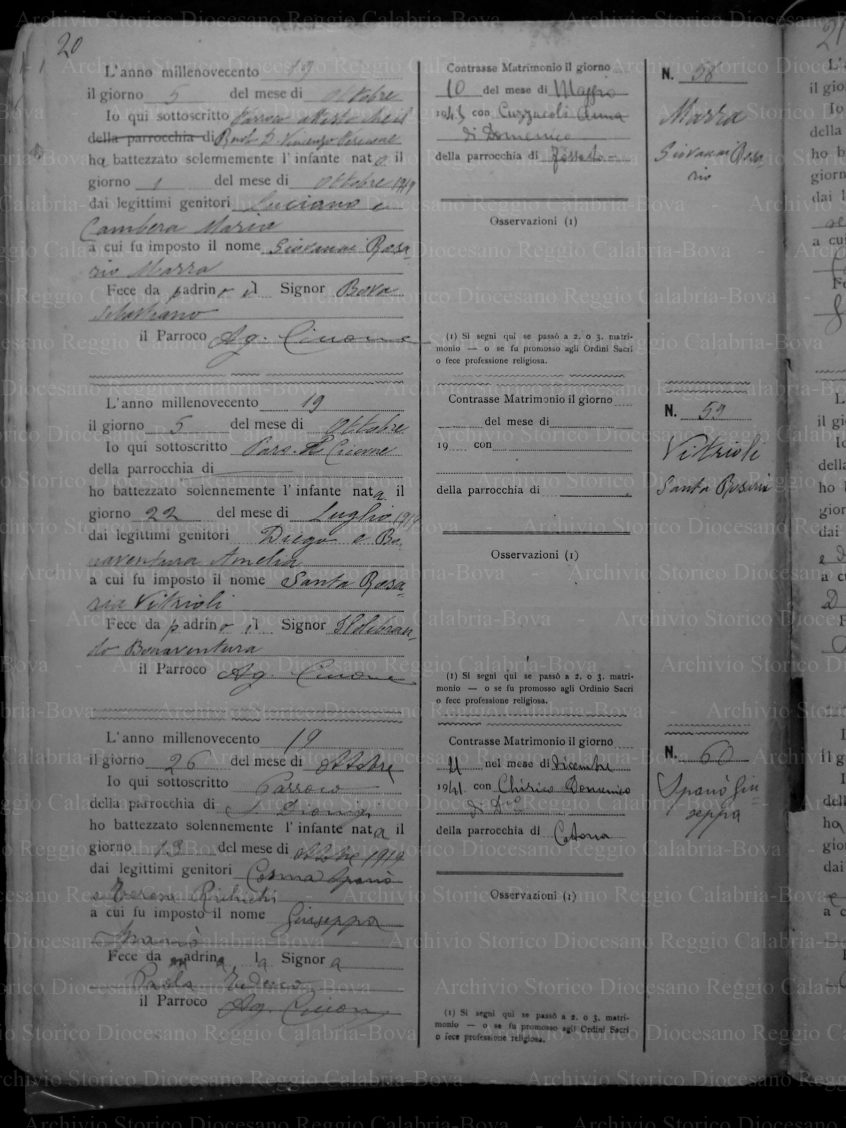 20
L'anno millenovecento 19
il giorno 5 del mese di Ottobre
Io qui sottoscritto Parroco attesto che il
della parrocchia di Rev. D. Vincenzo
ha battezzato solennemente l'infante nato il
giorno 1 del mese di Ottobre 1919
dai legittimi genitori Luciano e
Cambera Maria
a cui fu imposto il nome Giovanni Rosa-
rio Marra
Fece da padrino il Signor Bova
Sebastiano
il Parroco Ag. Cicione
Contrasse Matrimonio il giorno
10 del mese di Maggio
1945 con Cuzzucoli Anna
di Domenico
della parrocchia di Fossato
Osservazioni (1)
(1) Si segni qui se passò a 2. o 3. matri-
monio — o se fu promosso agli Ordini Sacri
o fece professione religiosa.
N. 58
Marra
Giovanni Rosa-
rio
L'anno millenovecento 19
il giorno 5 del mese di Ottobre
Io qui sottoscritto Paro. Cicione
della parrocchia di
ho battezzato solennemente l'infante nata il
giorno 22 del mese di Luglio 1919
dai legittimi genitori Diego e Bo-
naventura Amelia
a cui fu imposto il nome Santa Rosa-
ria Vitrioli
Fece da padrino il Signor Ildebran-
do Bonaventura
il Parroco Ag. Cicione
Contrasse Matrimonio il giorno
del mese di
19 con
della parrocchia di
Osservazioni (1)
(1) Si segni qui se passò a 2. o 3. matri-
monio — o se fu promosso agli Ordinio Sacri
o fece professione religiosa.
N. 59
Vitrioli
Santa Rosaria
L'anno millenovecento 19
il giorno 26 del mese di Ottobre
Io qui sottoscritto Parroco
della parrocchia di S. Dionigi
ho battezzato solennemente l'infante nata il
giorno 13 del mese di Ottobre 1919
dai legittimi genitori Cosma Spanò
e Teresa Richichi
a cui fu imposto il nome Giuseppa
Spanò
Fece da madrina la Signora
Paola Tedesco
il Parroco Ag. Cicione
Contrasse Matrimonio il giorno
11 nel mese di Dicembre
1941 con Chirico Domenico
di
della parrocchia di Catona
Osservazioni (1)
(1) Si segni qui se passò a 2. o 3. matri-
monio — o se fu promosso agli Ordini Sacri
o fece professione religiosa.
N. 60
Spanò Giu-
seppa
Archivio Storico Diocesano Reggio Calabria-Bova